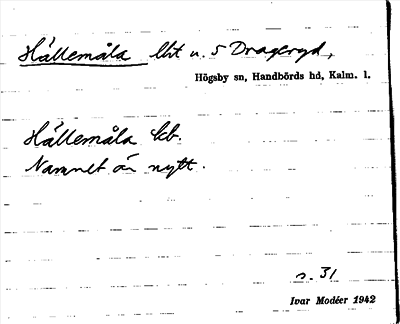 Hällemåla lht u. 5 Drageryd,
Högsby sn, Handbörds hd, Kalm. l.
Hällemåla lht.
Namnet är nytt.
s. 31
Ivar Modéer 1942